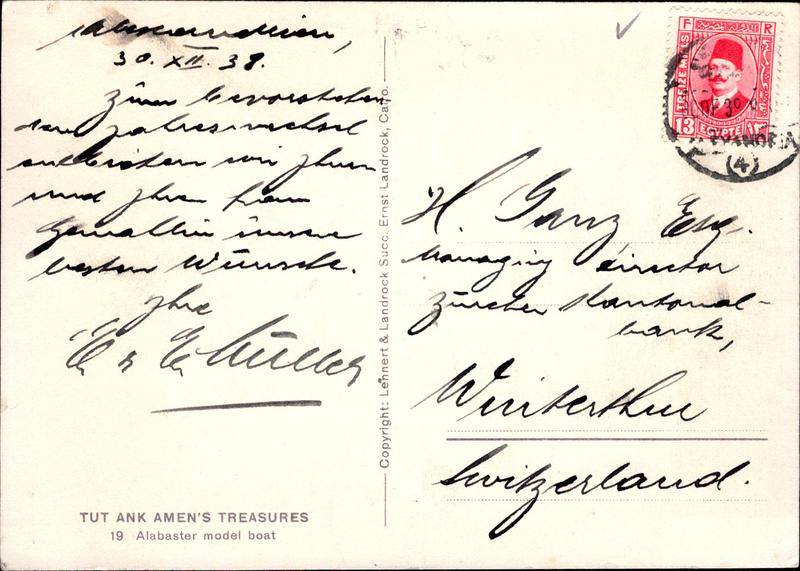 Alexandrien,
30. XII. 38.
Zum bevorstehen-
den Jahreswechsel
entbieten wir Ihnen
und Ihrer Frau
Gemahlin unsere
besten Wünsche.
Ihre
E. & E. Müller
TUT ANK AMEN'S TREASURES
19 Alabaster model boat
Copyright: Lehnert & Landrock Succ. Ernst Landrock, Cairo.
F R
TREIZE MILLS
13 EGYPTE ١٣
(4)
H. Ganz Esq.
Managing director
Zürcher Kantonal-
bank,
Winterthur
Switzerland.